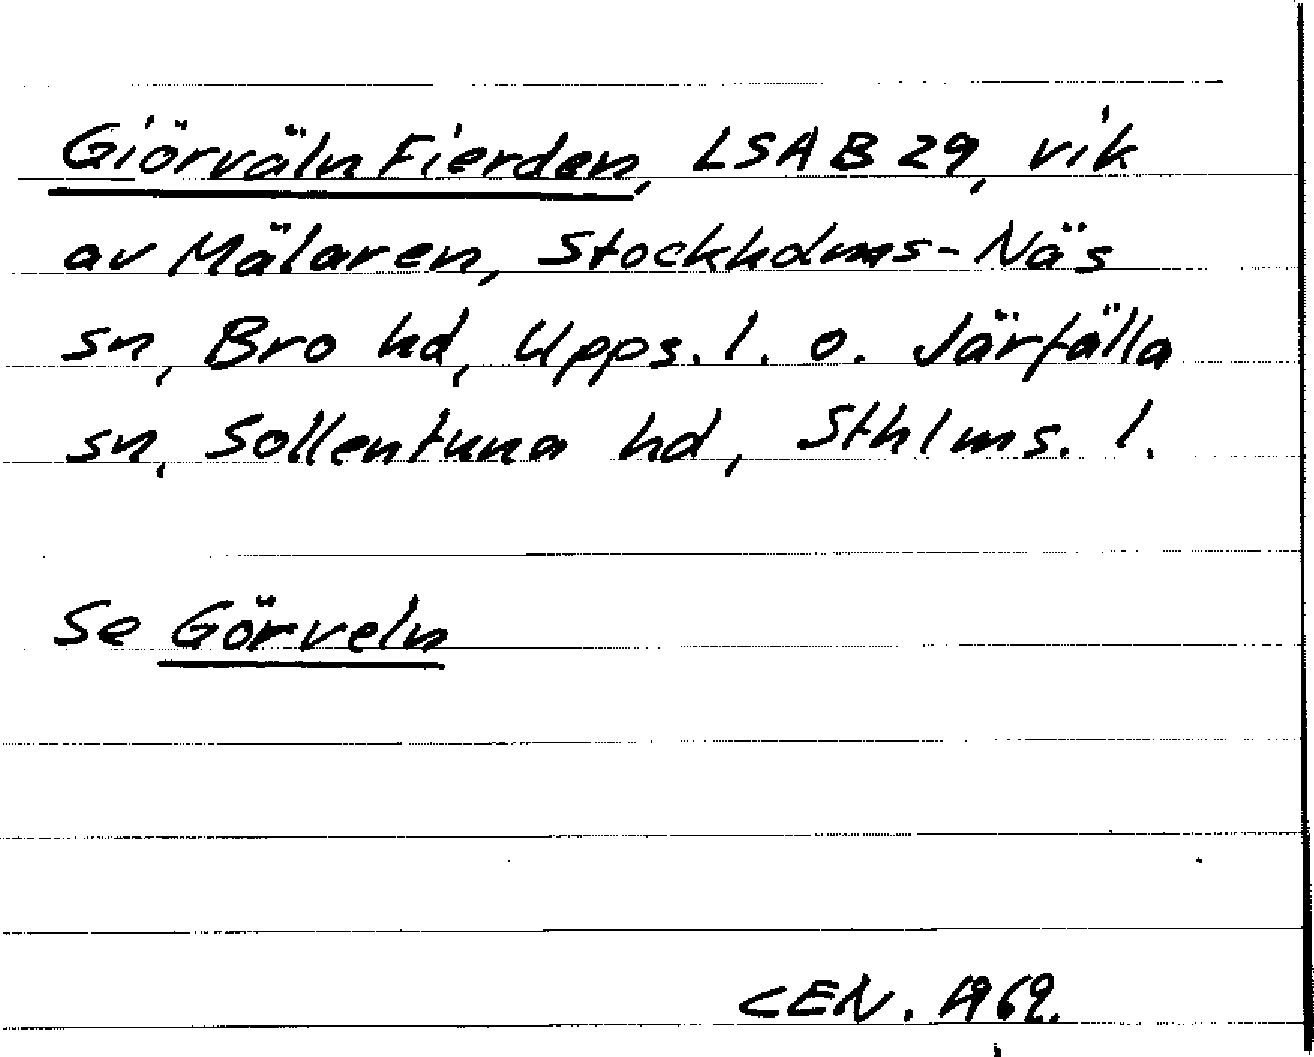 Giörväln Fierden, LSA B 29, vik
av Mälaren, Stockholms-Näs
sn, Bro hd, Upps. l. o. Järfälla
sn, Sollentuna hd, Sthlms. l.
Se Görveln
CEN. 1969.